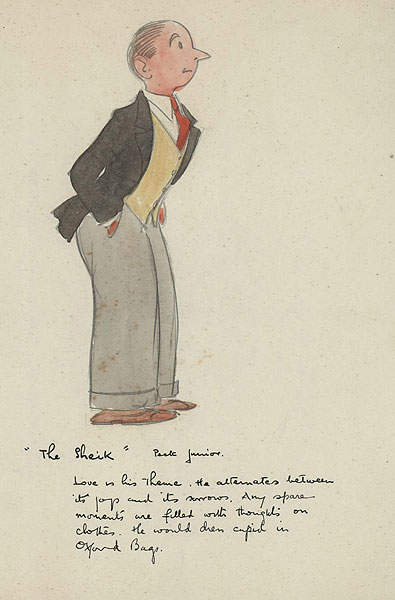 "The Sheik" Peek Junior.
Love is his Theme. He alternates between
its joys and its sorrows. Any spare
moments are filled with thoughts on
clothes. He would dress cupid in
Oxford Bags.